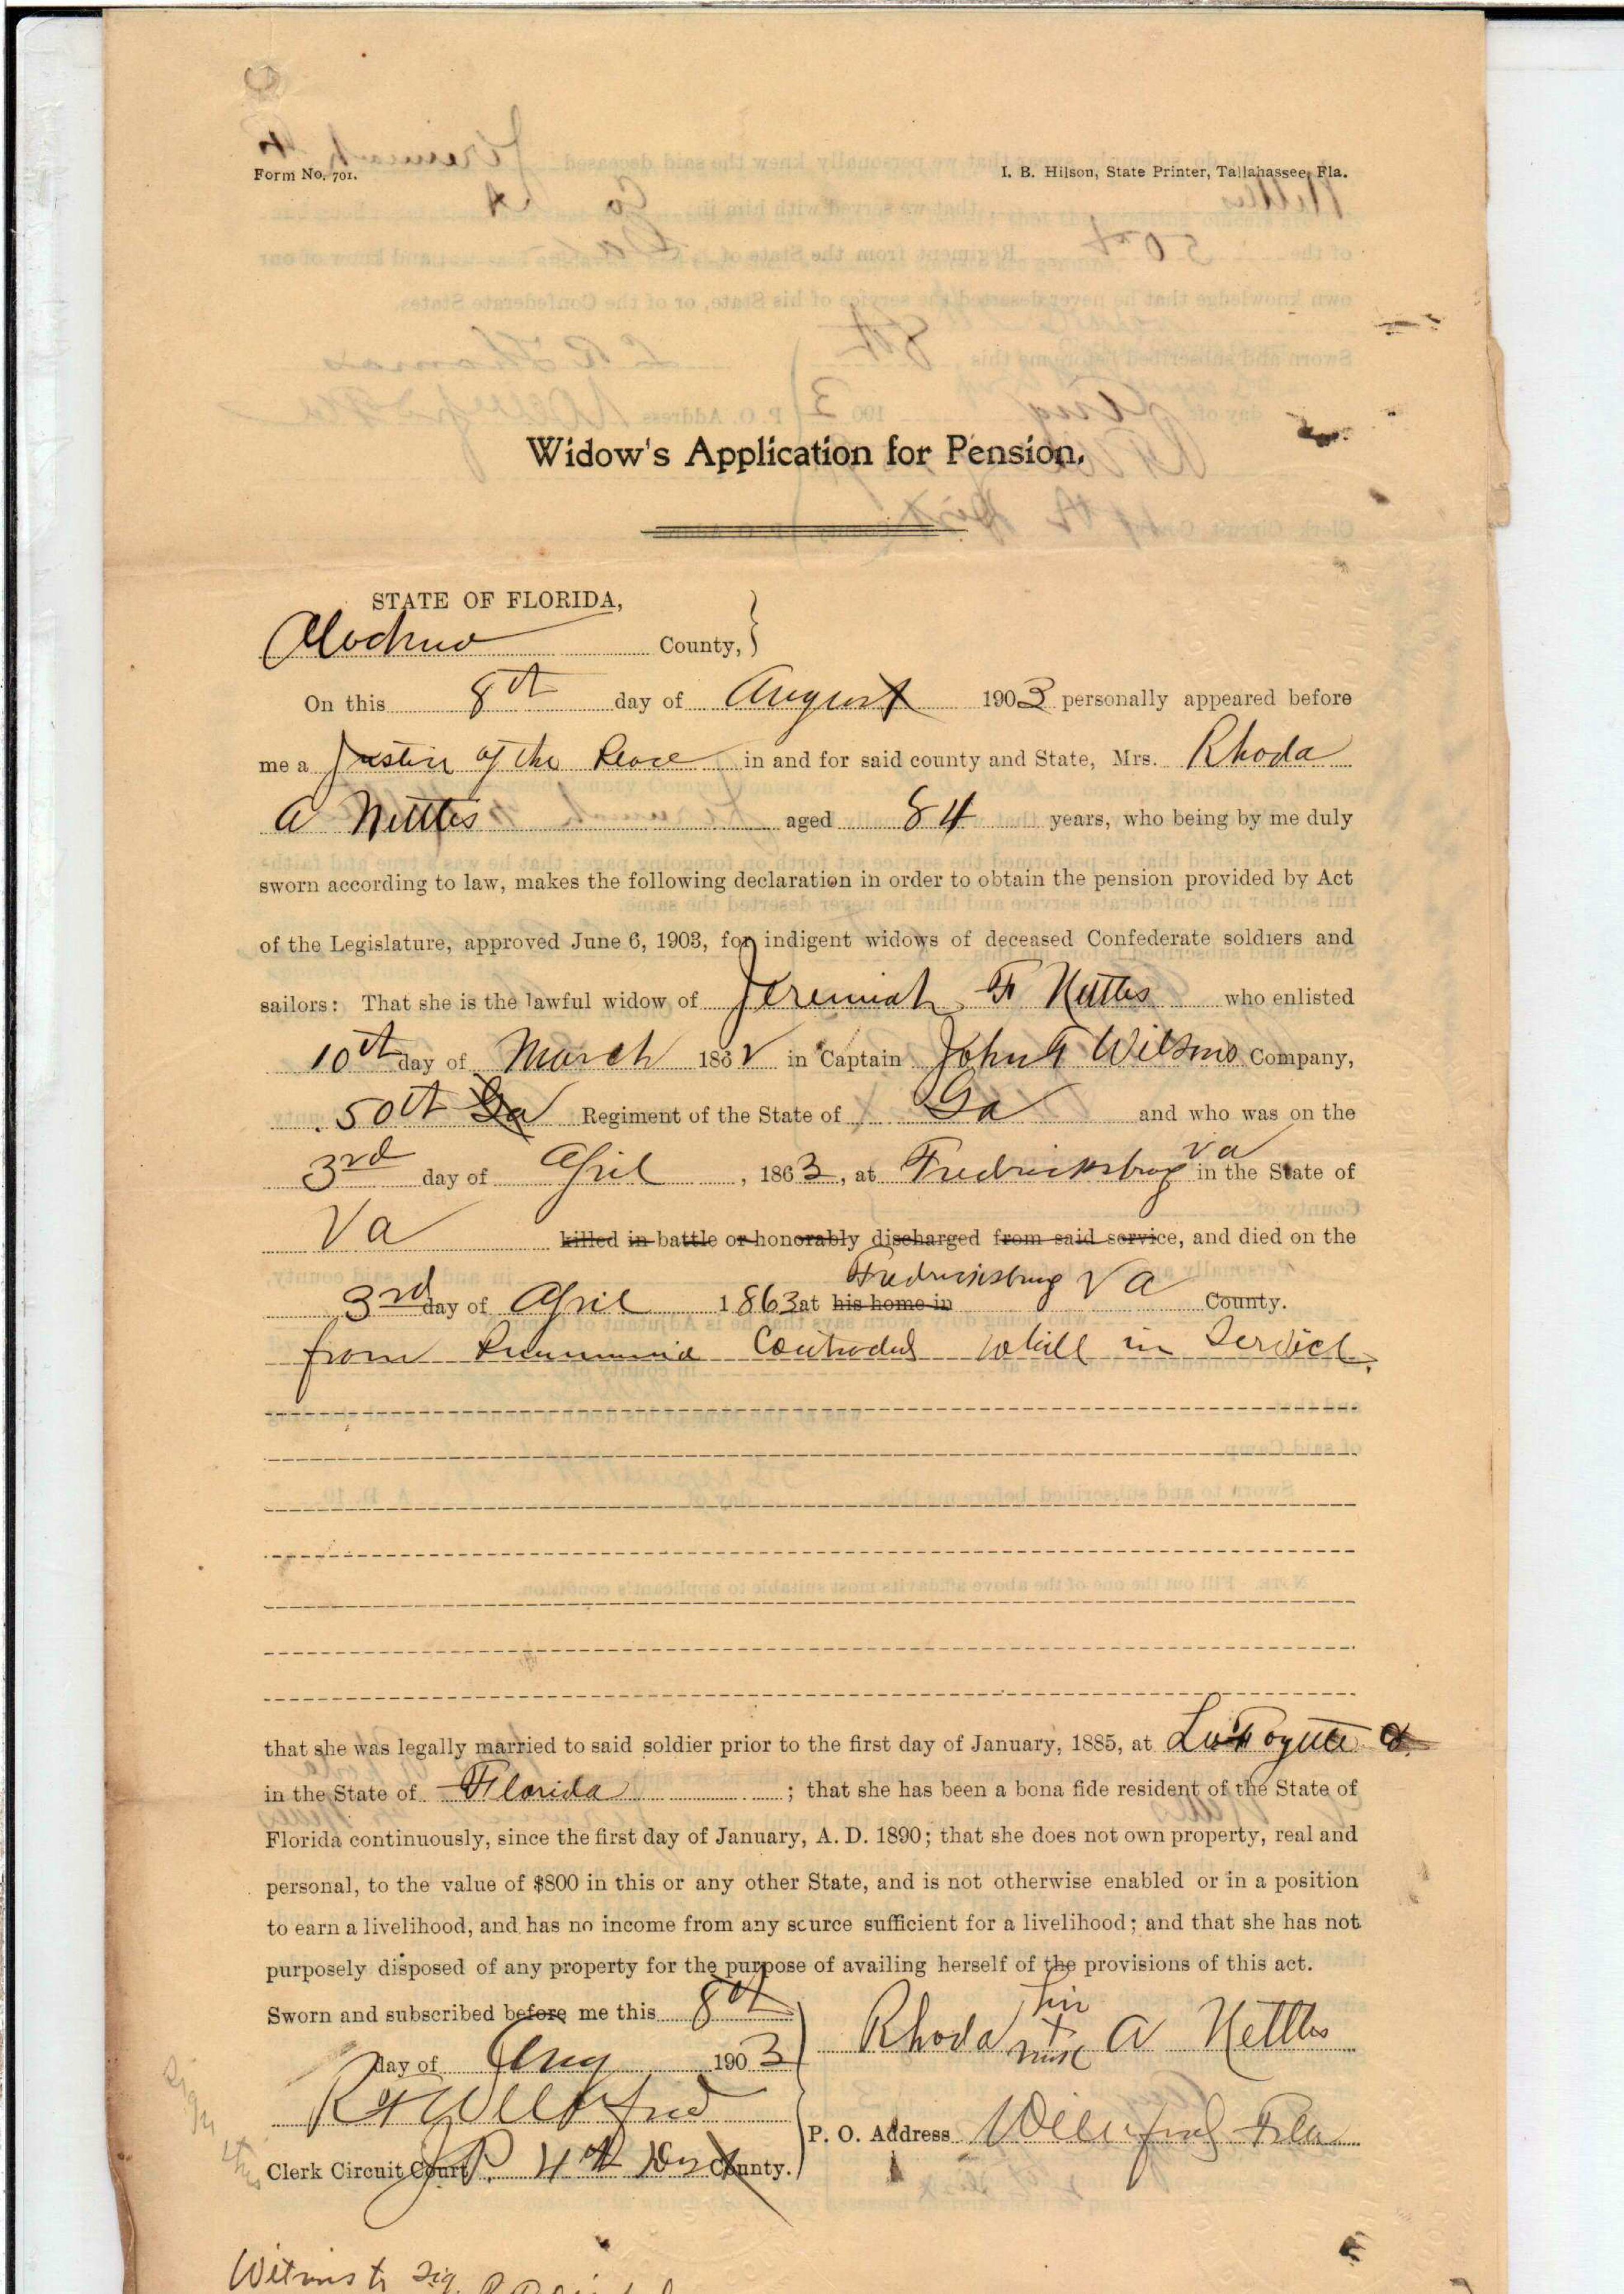 Form No. 701.
I. B. Hilson, State Printer, Tallahassee, Fla.
Widow's Application for Pension.
STATE OF FLORIDA,
Alachua County,
On this 8th day of August 1903 personally appeared before
me a Justice of the Peace in and for said county and State, Mrs. Rhoda
A Nettles aged 84 years, who being by me duly
sworn according to law, makes the following declaration in order to obtain the pension provided by Act
of the Legislature, approved June 6, 1903, for indigent widows of deceased Confederate soldiers and
sailors: That she is the lawful widow of Jeremiah F Nettles who enlisted
10th day of March 1862 in Captain John Wilsons Company,
50th Ga Regiment of the State of Ga and who was on the
3rd day of April, 1863, at Fredricksburg Va in the State of
Va killed in battle or honorably discharged from said service, and died on the
3rd day of April 1863 at his home in Fredricksburg Va County.
from Pneumonia while in Service.
that she was legally married to said soldier prior to the first day of January, 1885, at LaFoyette
in the State of Florida; that she has been a bona fide resident of the State of
Florida continuously, since the first day of January, A. D. 1890; that she does not own property, real and
personal, to the value of $800 in this or any other State, and is not otherwise enabled or in a position
to earn a livelihood, and has no income from any source sufficient for a livelihood; and that she has not
purposely disposed of any property for the purpose of availing herself of the provisions of this act.
Sworn and subscribed before me this 8th
day of Aug 1903
Rhoda A Nettles
P. O. Address Fla
Clerk Circuit Court J.P. 4th Dist County.